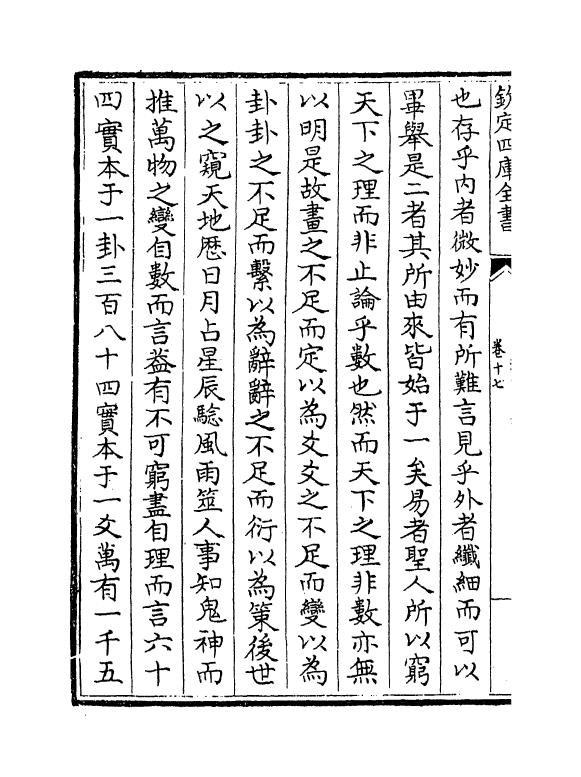 欽定四庫全書
卷十七
也存乎内者微妙而有所難言見乎外者纖細而可以
畢舉是二者其所由來皆始于一矣易者聖人所以窮
天下之理而非止論乎數也然而天下之理非數亦無
以明是故畫之不足而定以為爻爻之不足而變以為
卦卦之不足而繫以為辭辭之不足而衍以為策後世
以之窺天地厯日月占星辰驗風雨筮人事知鬼神而
推萬物之變自數而言葢有不可窮盡自理而言六十
四實本于一卦三百八十四實本于一爻萬有一千五